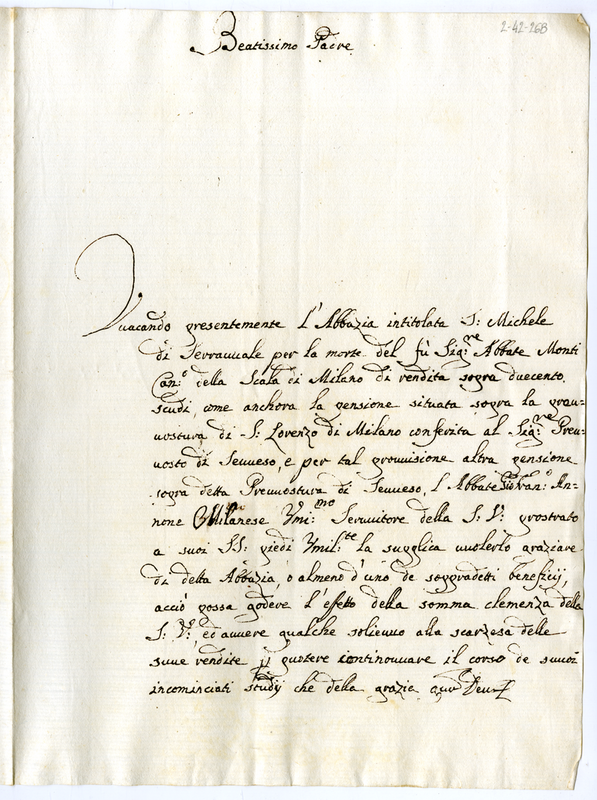 2-42-26B
Beatissimo Padre
Vuacando presentemente l'Abbazia intitolata S: Michele
di Serrauuale per la morte del fù Sig:re Abbate Monti
Can:o della Scala di Milano di rendita sopra duecento
scudi, come anchora la pensione situata sopra la preu=
uostura, di S: Lorenzo di Milano conferita al Sig:re Preu=
uosto di Seuueso, e per tal prouuisione altra pensione
sopra detta Preuuostura di Seuueso, l'Abbate Gio: An=
none Milanese Vmi:mo Seruuitore della S: V: prostrato
a suoi SS: piedi Vmil:te la supplica uuolerlo graziare
di detta Abbazia, o almeno d'uno de sopradetti beneficij,
acciò possa godere l'effetto della somma clemenza della
S: V:, ed auuere qualche solieuuo alla scarzesa delle
suue rendite p potere continouuare il corso de suuoi
incominciati studij che della grazia